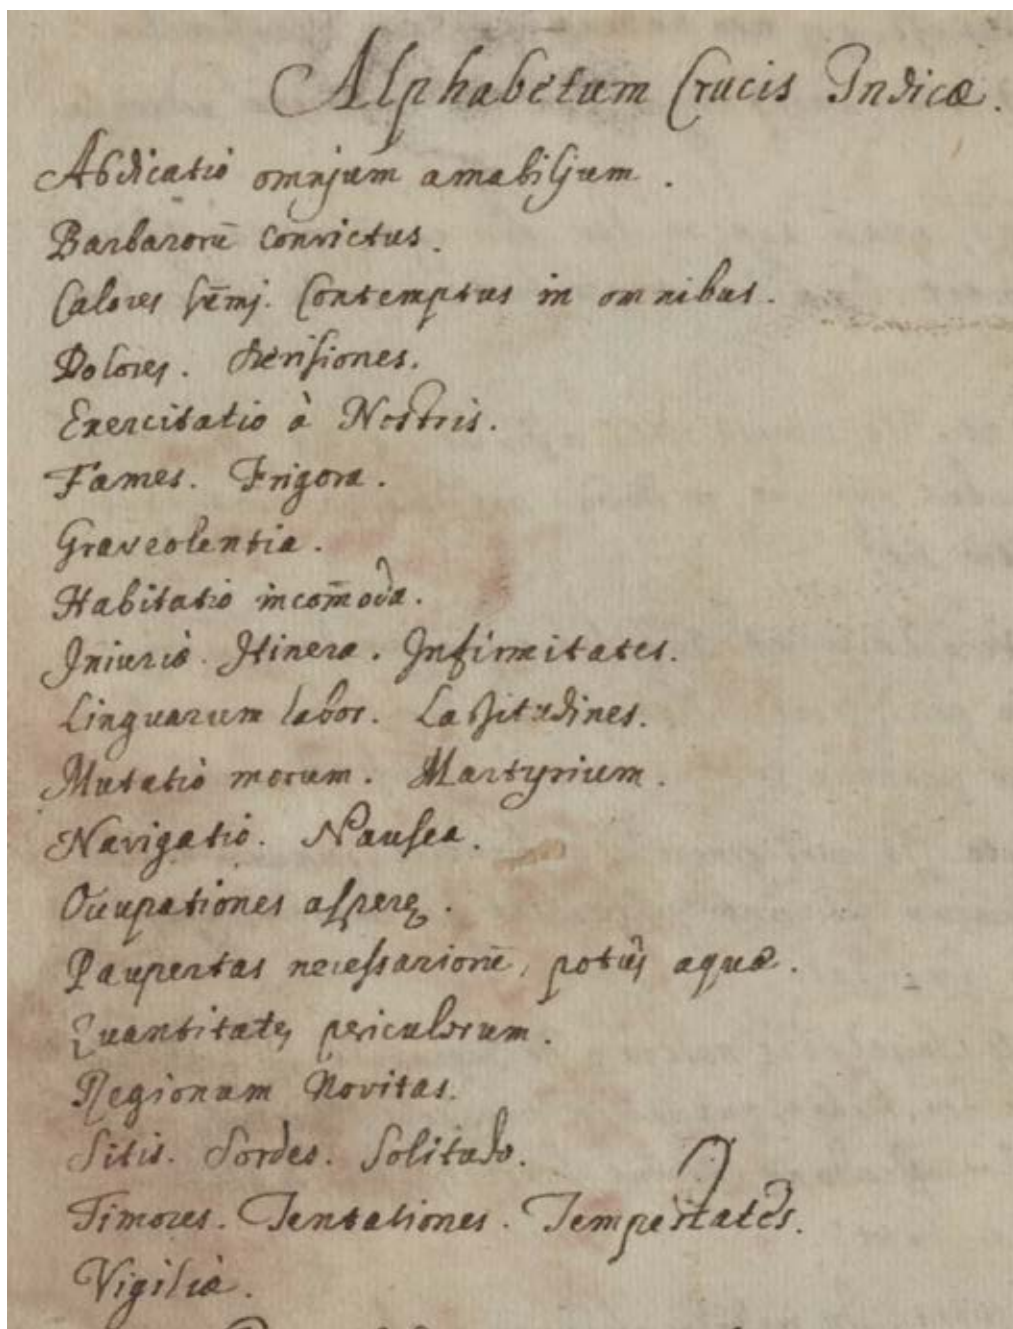 Alphabetum Crucis Indicæ.
Abdicatio omnium amabilium.
Barbarorū convictus.
Calores sūmi. Contemptus in omnibus.
Dolores. Derisiones.
Exercitatio à Nostris.
Fames. Frigora.
Graveolentia.
Habitatio incom̄oda.
Iniuriæ. Itinera. Infirmitates.
Linguarum labor. Lassitudines.
Mutatio morum. Martyrium.
Navigatio. Nausea.
Occupationes asperę.
Paupertas necessariorū, potus aquæ.
Quantitates periculorum.
Regionum Novitas.
Sitis. Sordes. Solitudo.
Timores. Tentationes. Tempestates.
Vigiliæ.